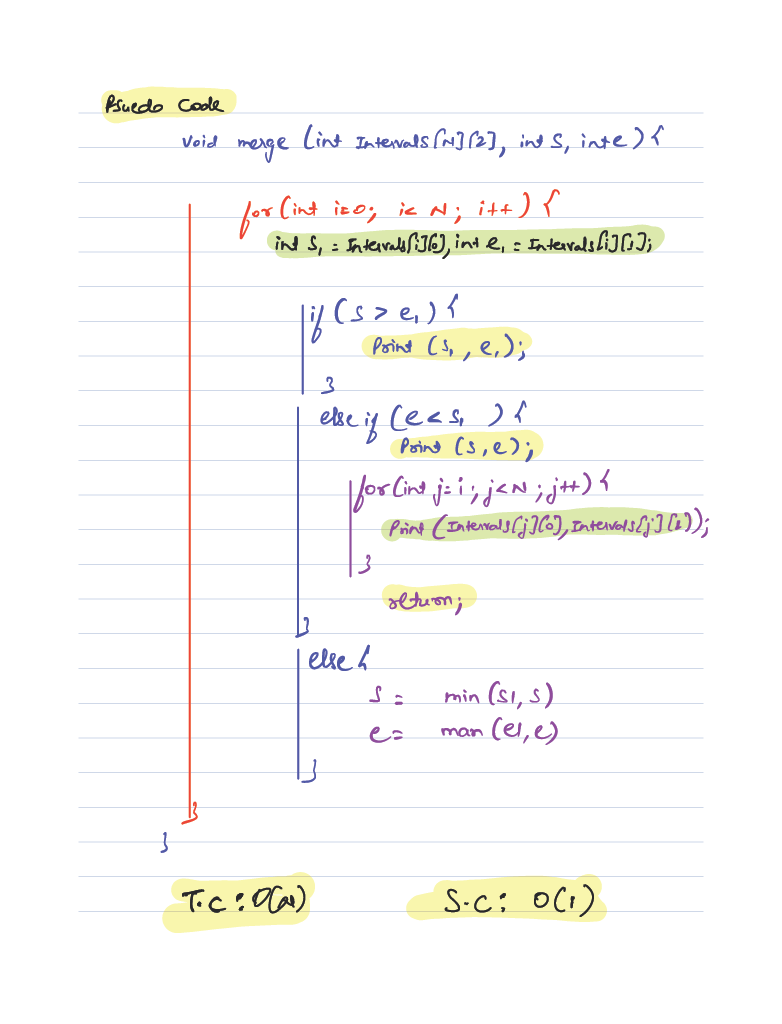 Psuedo Code
void merge (int Intervals[N][2], int S, int e) {
for (int i=0; i< N; i++) {
int S1 = Intervals[i][0], int e1 = Intervals[i][1];
if (S > e1) {
Print (S1, e1);
}
else if (e < S1 ) {
Print (S, e);
for (int j=i; j<N; j++) {
Print (Intervals[j][0], Intervals[j][1]);
}
return;
}
else {
S = min (S1, S)
e = max (e1, e)
}
}
}
T.C : O(N) S.C : O(1)